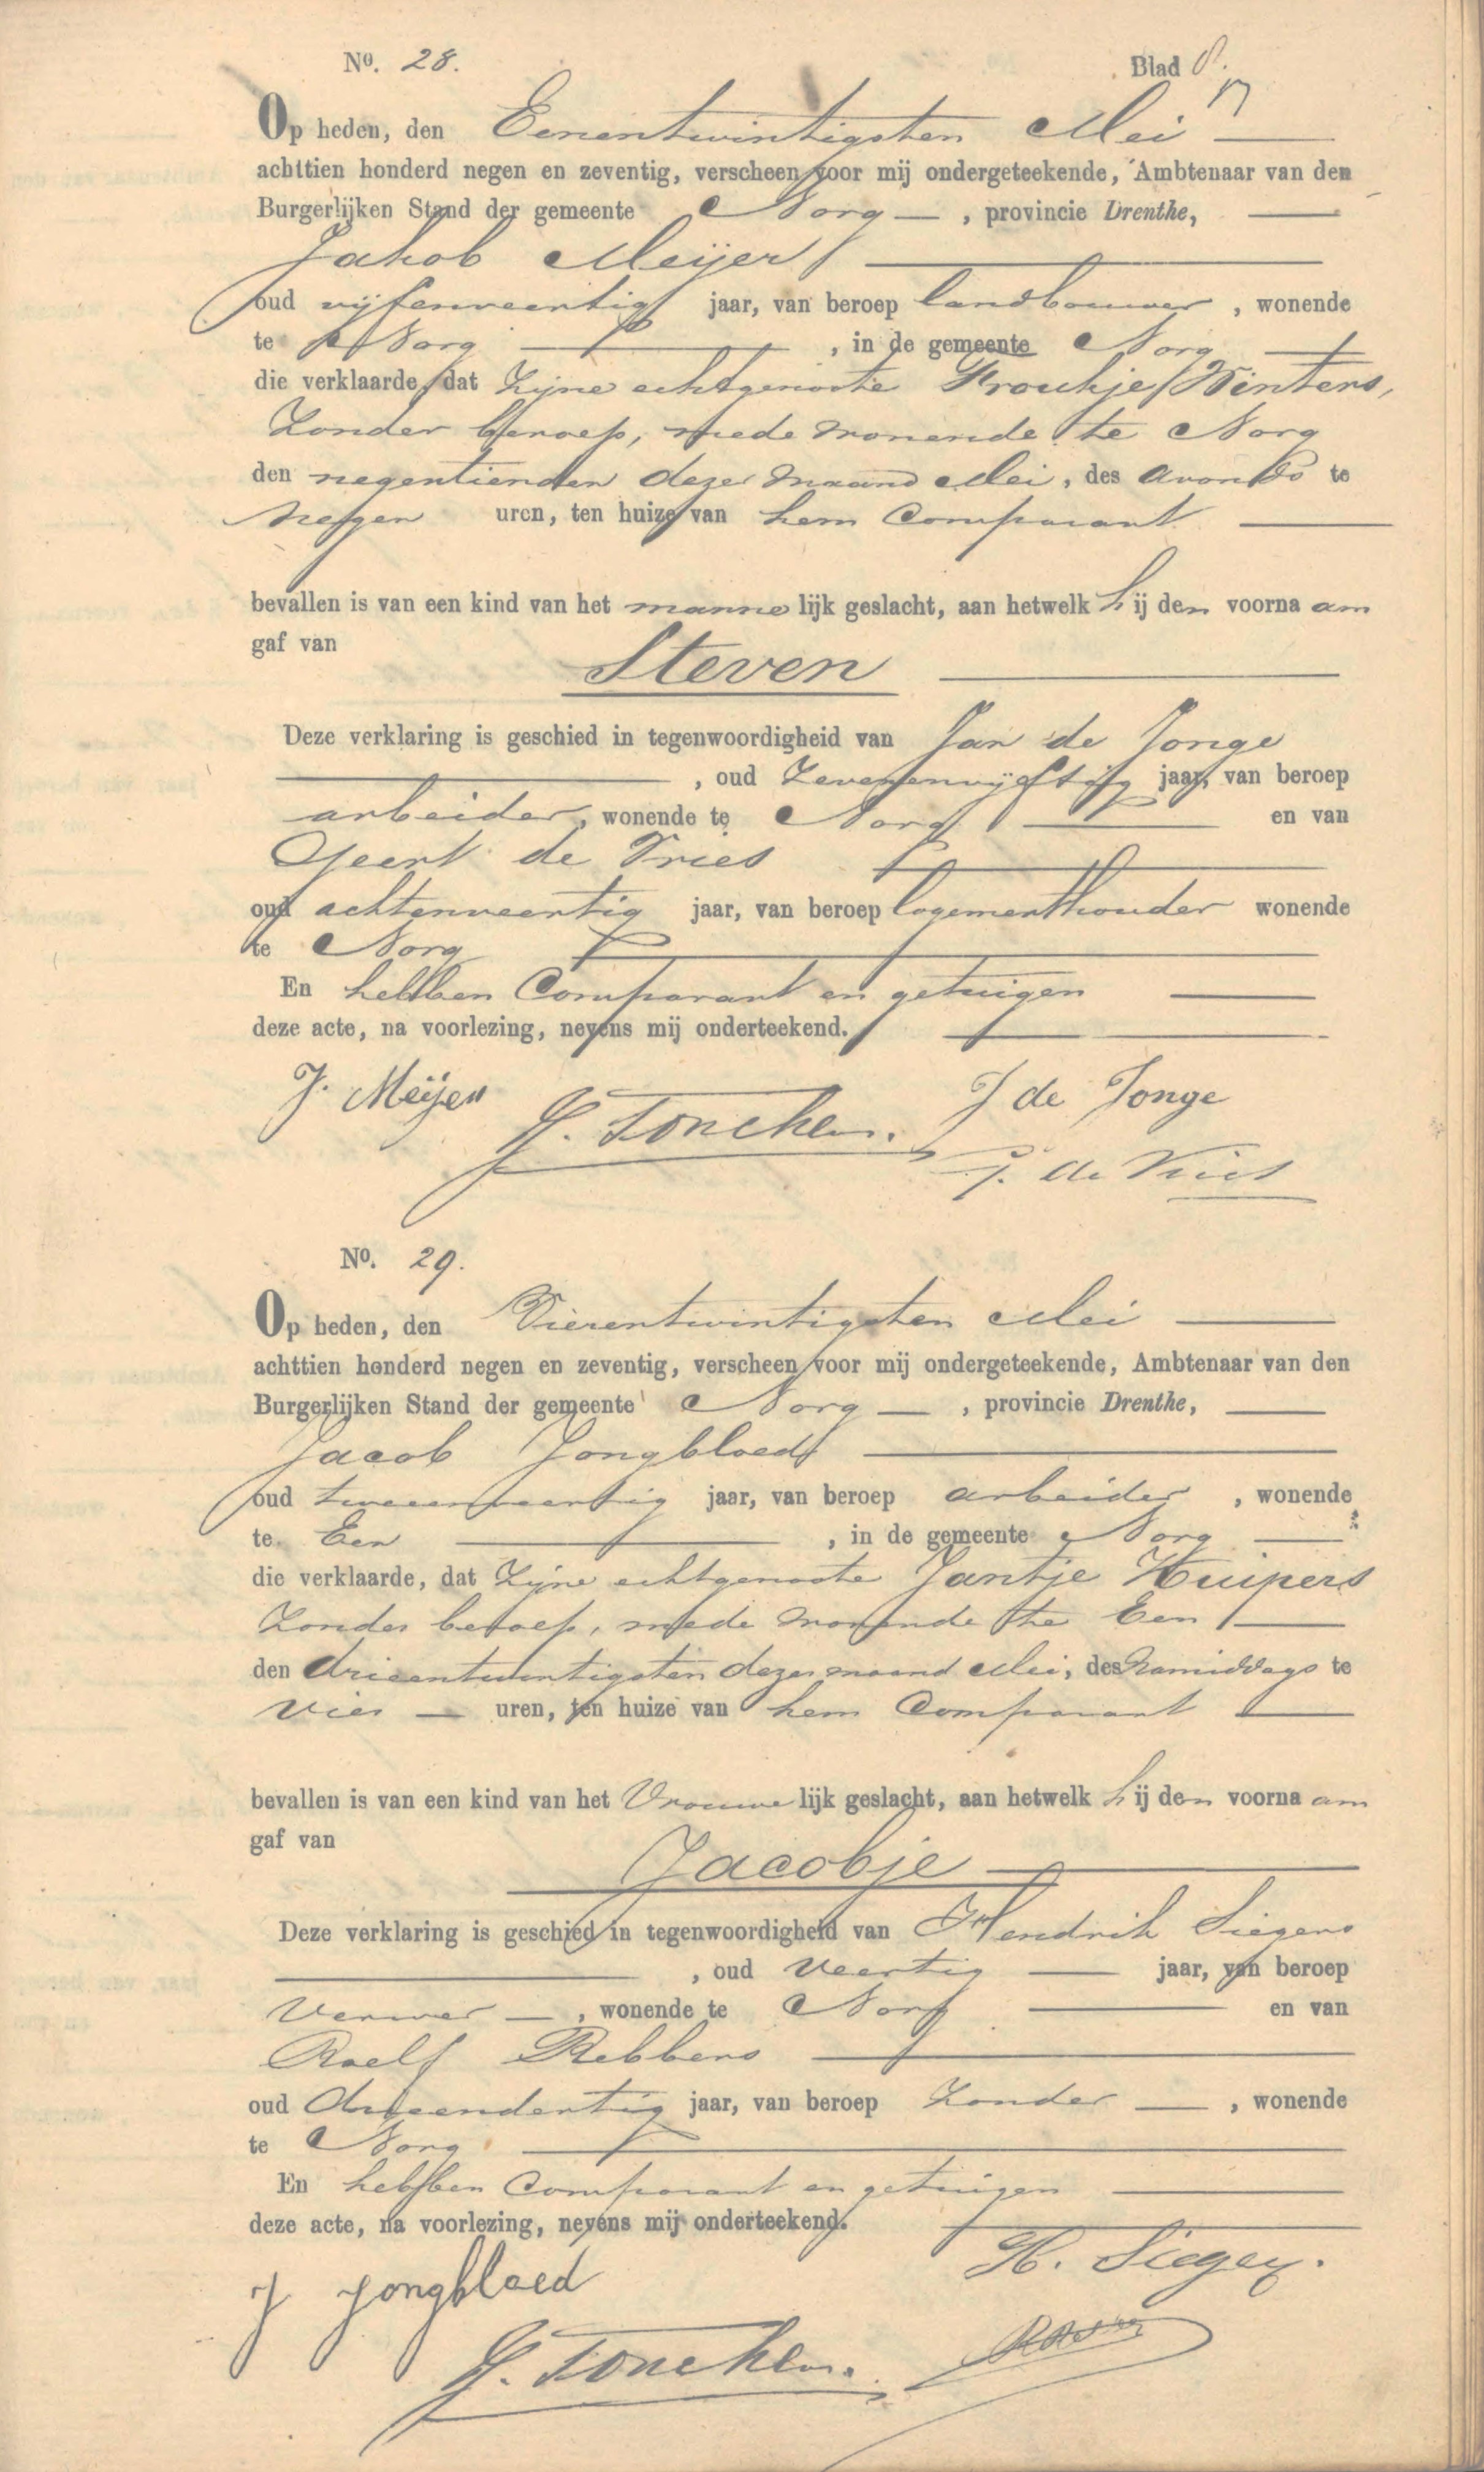 No. 28.
Blad 8.
Op heden, den Eenentwintigsten Mei
achttien honderd negen en zeventig, verscheen voor mij ondergeteekende, Ambtenaar van den
Burgerlijken Stand der gemeente Norg, provincie Drenthe,
Jakob Meijer
oud vijfenveertig jaar, van beroep landbouwer, wonende
te Norg, in de gemeente Norg
die verklaarde, dat zijne echtgenoote Froukje Winters,
zonder beroep, mede wonende te Norg
den negentienden dezer maand Mei, des avonds te
negen uren, ten huize van hem Comparant
bevallen is van een kind van het mannelijk geslacht, aan hetwelk hij den voornaam
gaf van
Steven
Deze verklaring is geschied in tegenwoordigheid van Jan de Jonge
, oud zevenenvijftig jaar, van beroep
arbeider, wonende te Norg en van
Geert de Vries
oud achtenveertig jaar, van beroep logementhouder wonende
te Norg
En hebben Comparant en getuigen
deze acte, na voorlezing, nevens mij onderteekend.
J. Meijer
J de Jonge
J. Tonckens.
G. de Vries
No. 29.
Op heden, den Vierentwintigsten Mei
achttien honderd negen en zeventig, verscheen voor mij ondergeteekende, Ambtenaar van den
Burgerlijken Stand der gemeente Norg, provincie Drenthe,
Jacob Jongbloed
oud tweeenveertig jaar, van beroep arbeider, wonende
te Een, in de gemeente Norg
die verklaarde, dat zijne echtgenoote Jantje Kuipers
zonder beroep, mede wonende te Een
den drieentwintigsten dezer maand Mei, des namiddags te
vier uren, ten huize van hem Comparant
bevallen is van een kind van het vrouwelijk geslacht, aan hetwelk hij den voornaam
gaf van
Jacobje
Deze verklaring is geschied in tegenwoordigheid van Hendrik Siegers
, oud veertig jaar, van beroep
verwer, wonende te Norg en van
Roelf Rebbers
oud drieendertig jaar, van beroep zonder, wonende
te Norg
En hebben Comparant en getuigen
deze acte, na voorlezing, nevens mij onderteekend.
H. Siegers.
J Jongbloed
J. Tonckens.